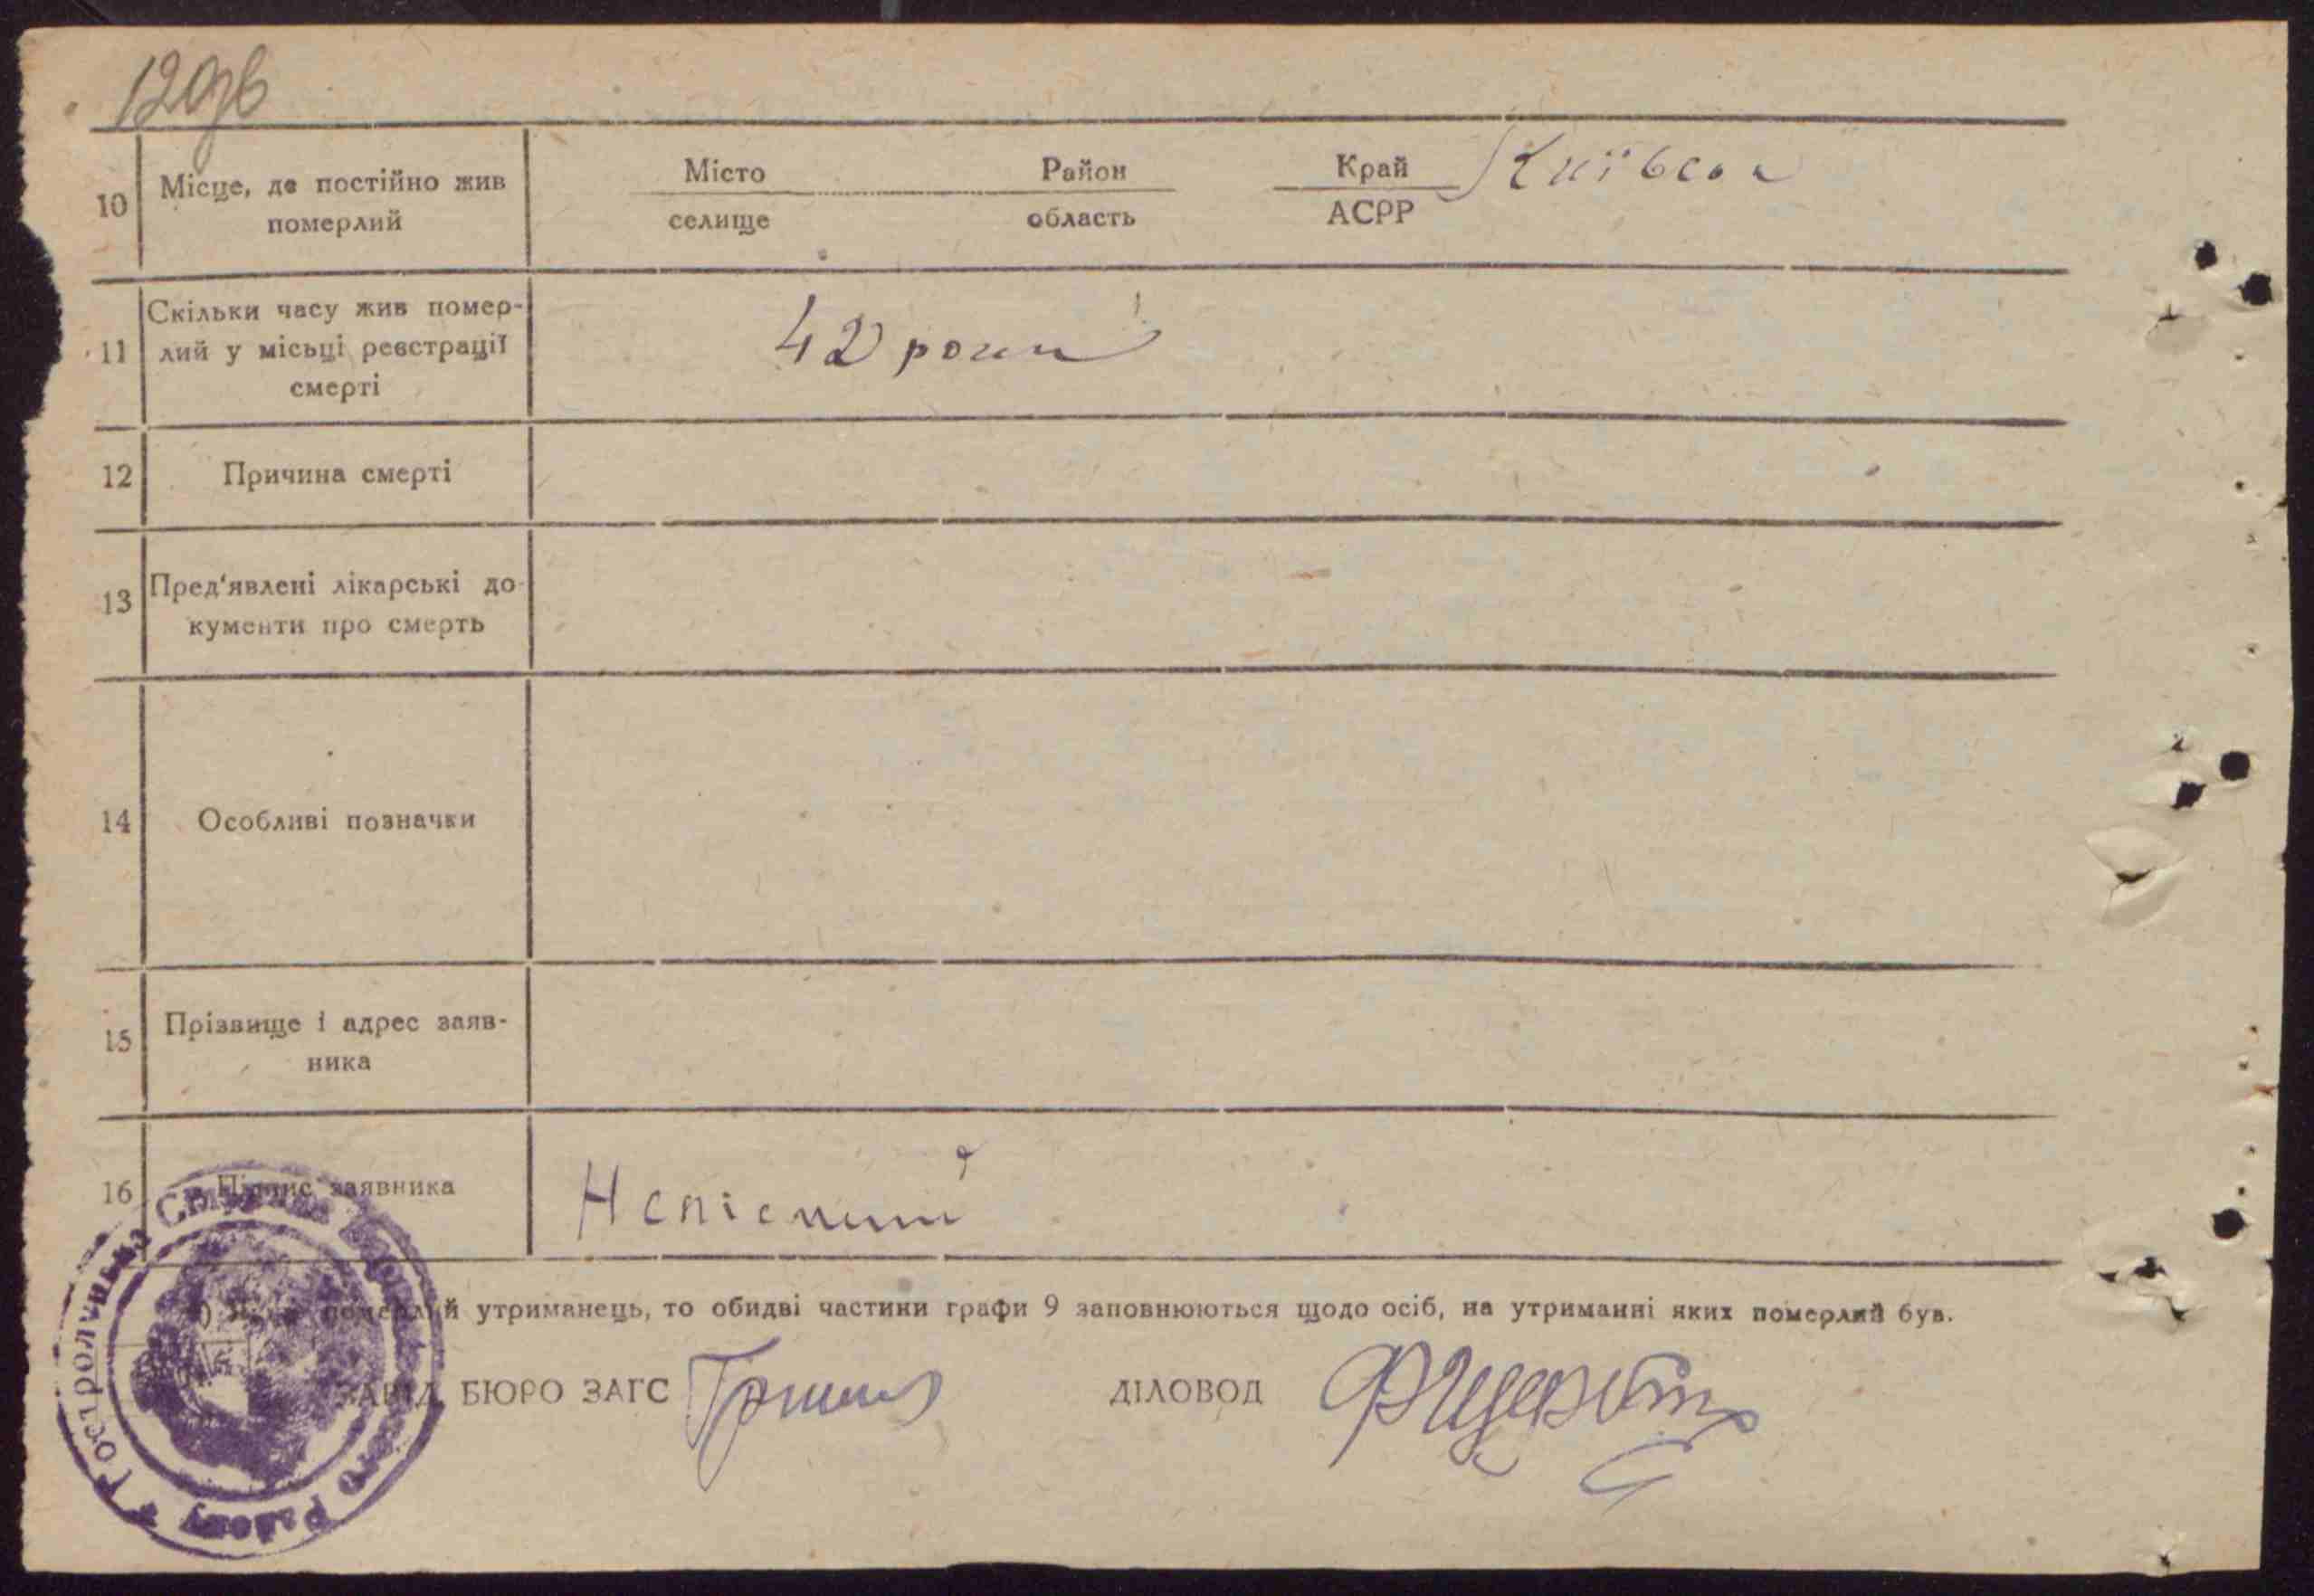 120зв
10 Місце, де постійно жив померлий
Місто Район Край Київськ
селище область АСРР
11 Скільки часу жив помер-
лий у місьці реєстрації
смерті
42 роки
12 Причина смерті
13 Пред'явлені лікарські до-
кументи про смерть
14 Особливі позначки
15 Прізвище і адрес заяв-
ника
16 Підпис заявника
Неписьменний
померлий утриманець, то обидві частини графи 9 заповнюються щодо осіб, на утриманні яких померлий був.
ЗАВІД. БЮРО ЗАГС
ДІЛОВОД
Району